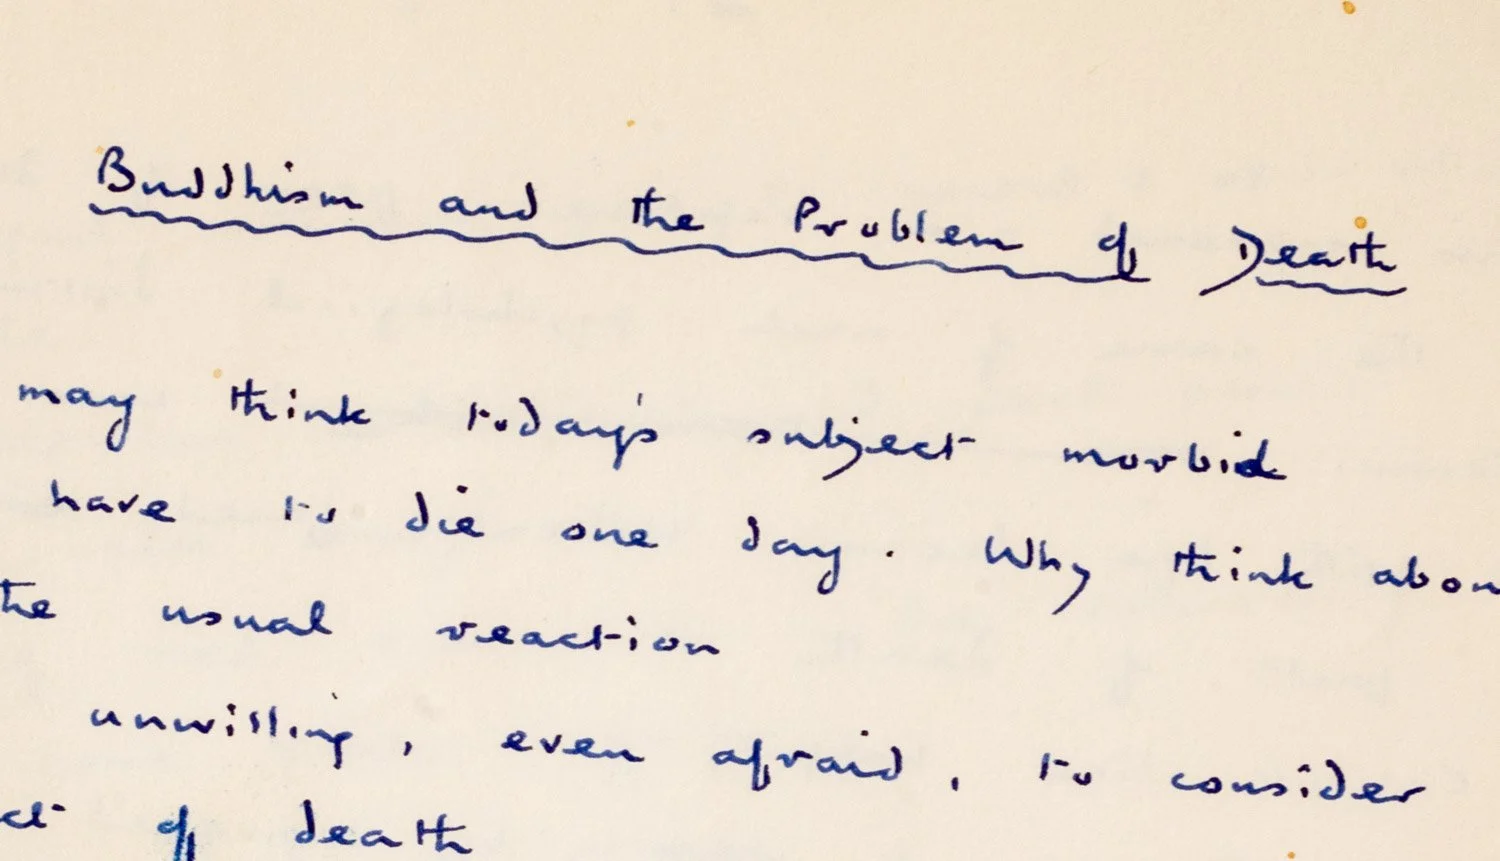 Buddhism and the Problem of Death
may think today's subject morbid
have to die one day. Why think abou
the usual reaction
unwilling, even afraid, to consider
ct of death